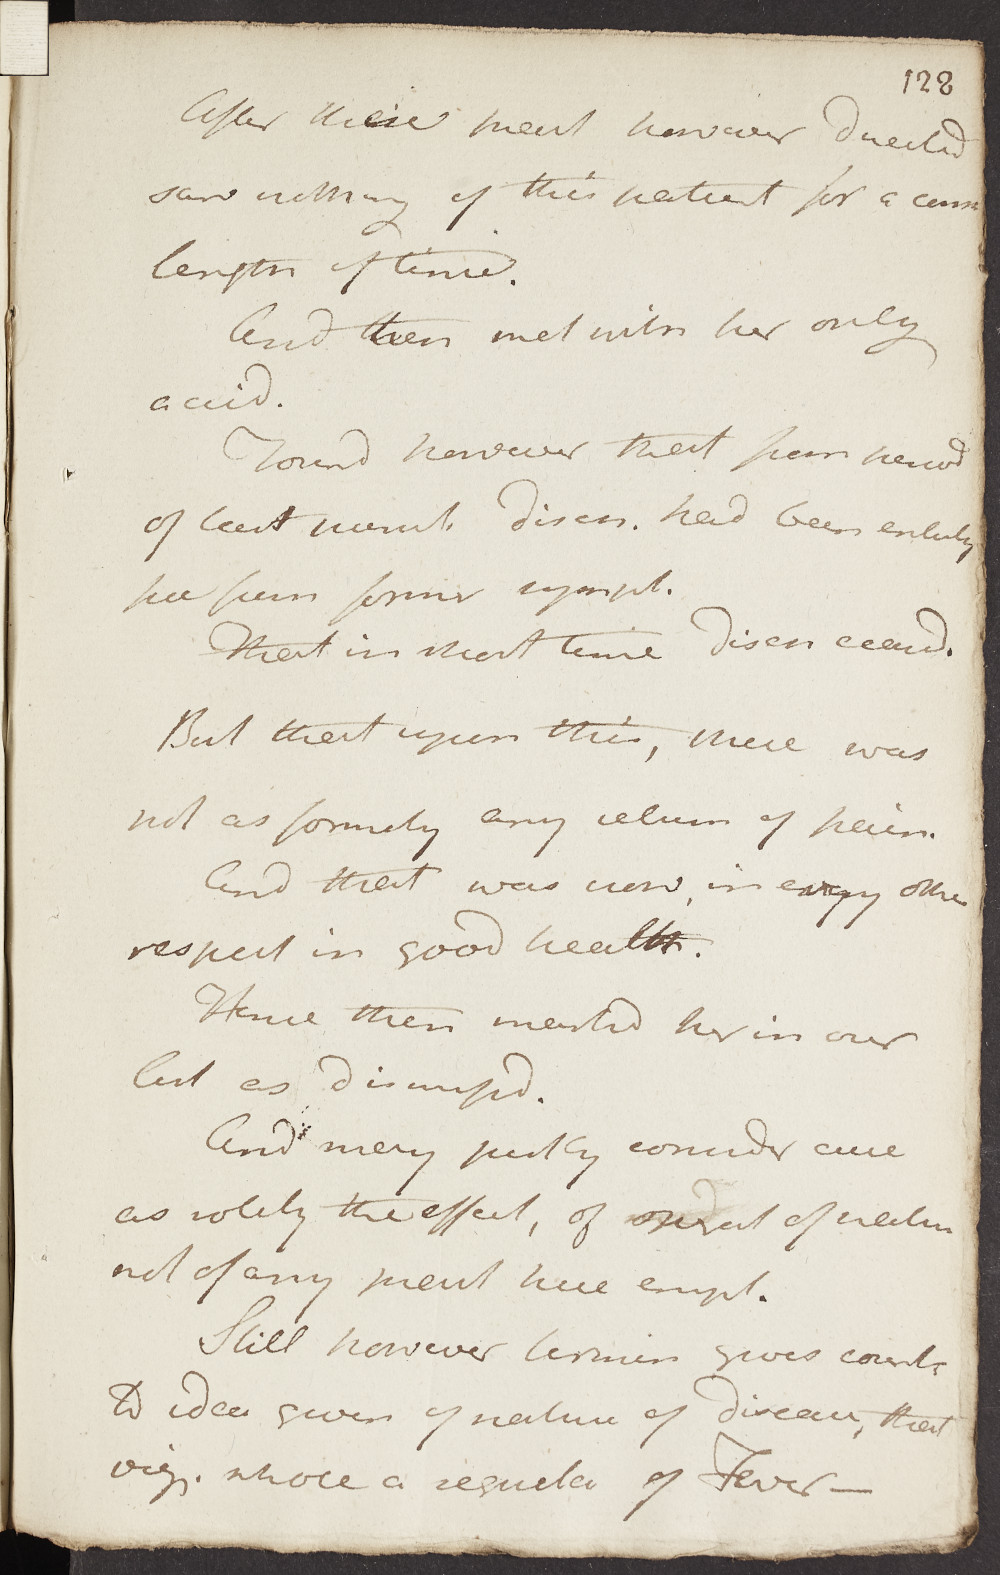 128
After these pract however Directed
saw nothing of this patient for a cons
length of time.
And then met with her only
accid.
Found however that from period
of last prescript. Diseas. had been entirely
free from former sympt.
That in short time Diseas ceased.
But that upon this, there was
not as formerly any return of pain.
And that was now, in every other
respect in good health.
Hence then marked her in our
list as dismissed.
And may justly consider cure
as solely the effect, of of nature
not of any pract here empl.
Still however termin gives count
to idea given of nature of disease, that
viz. whole a sequela of Fever —